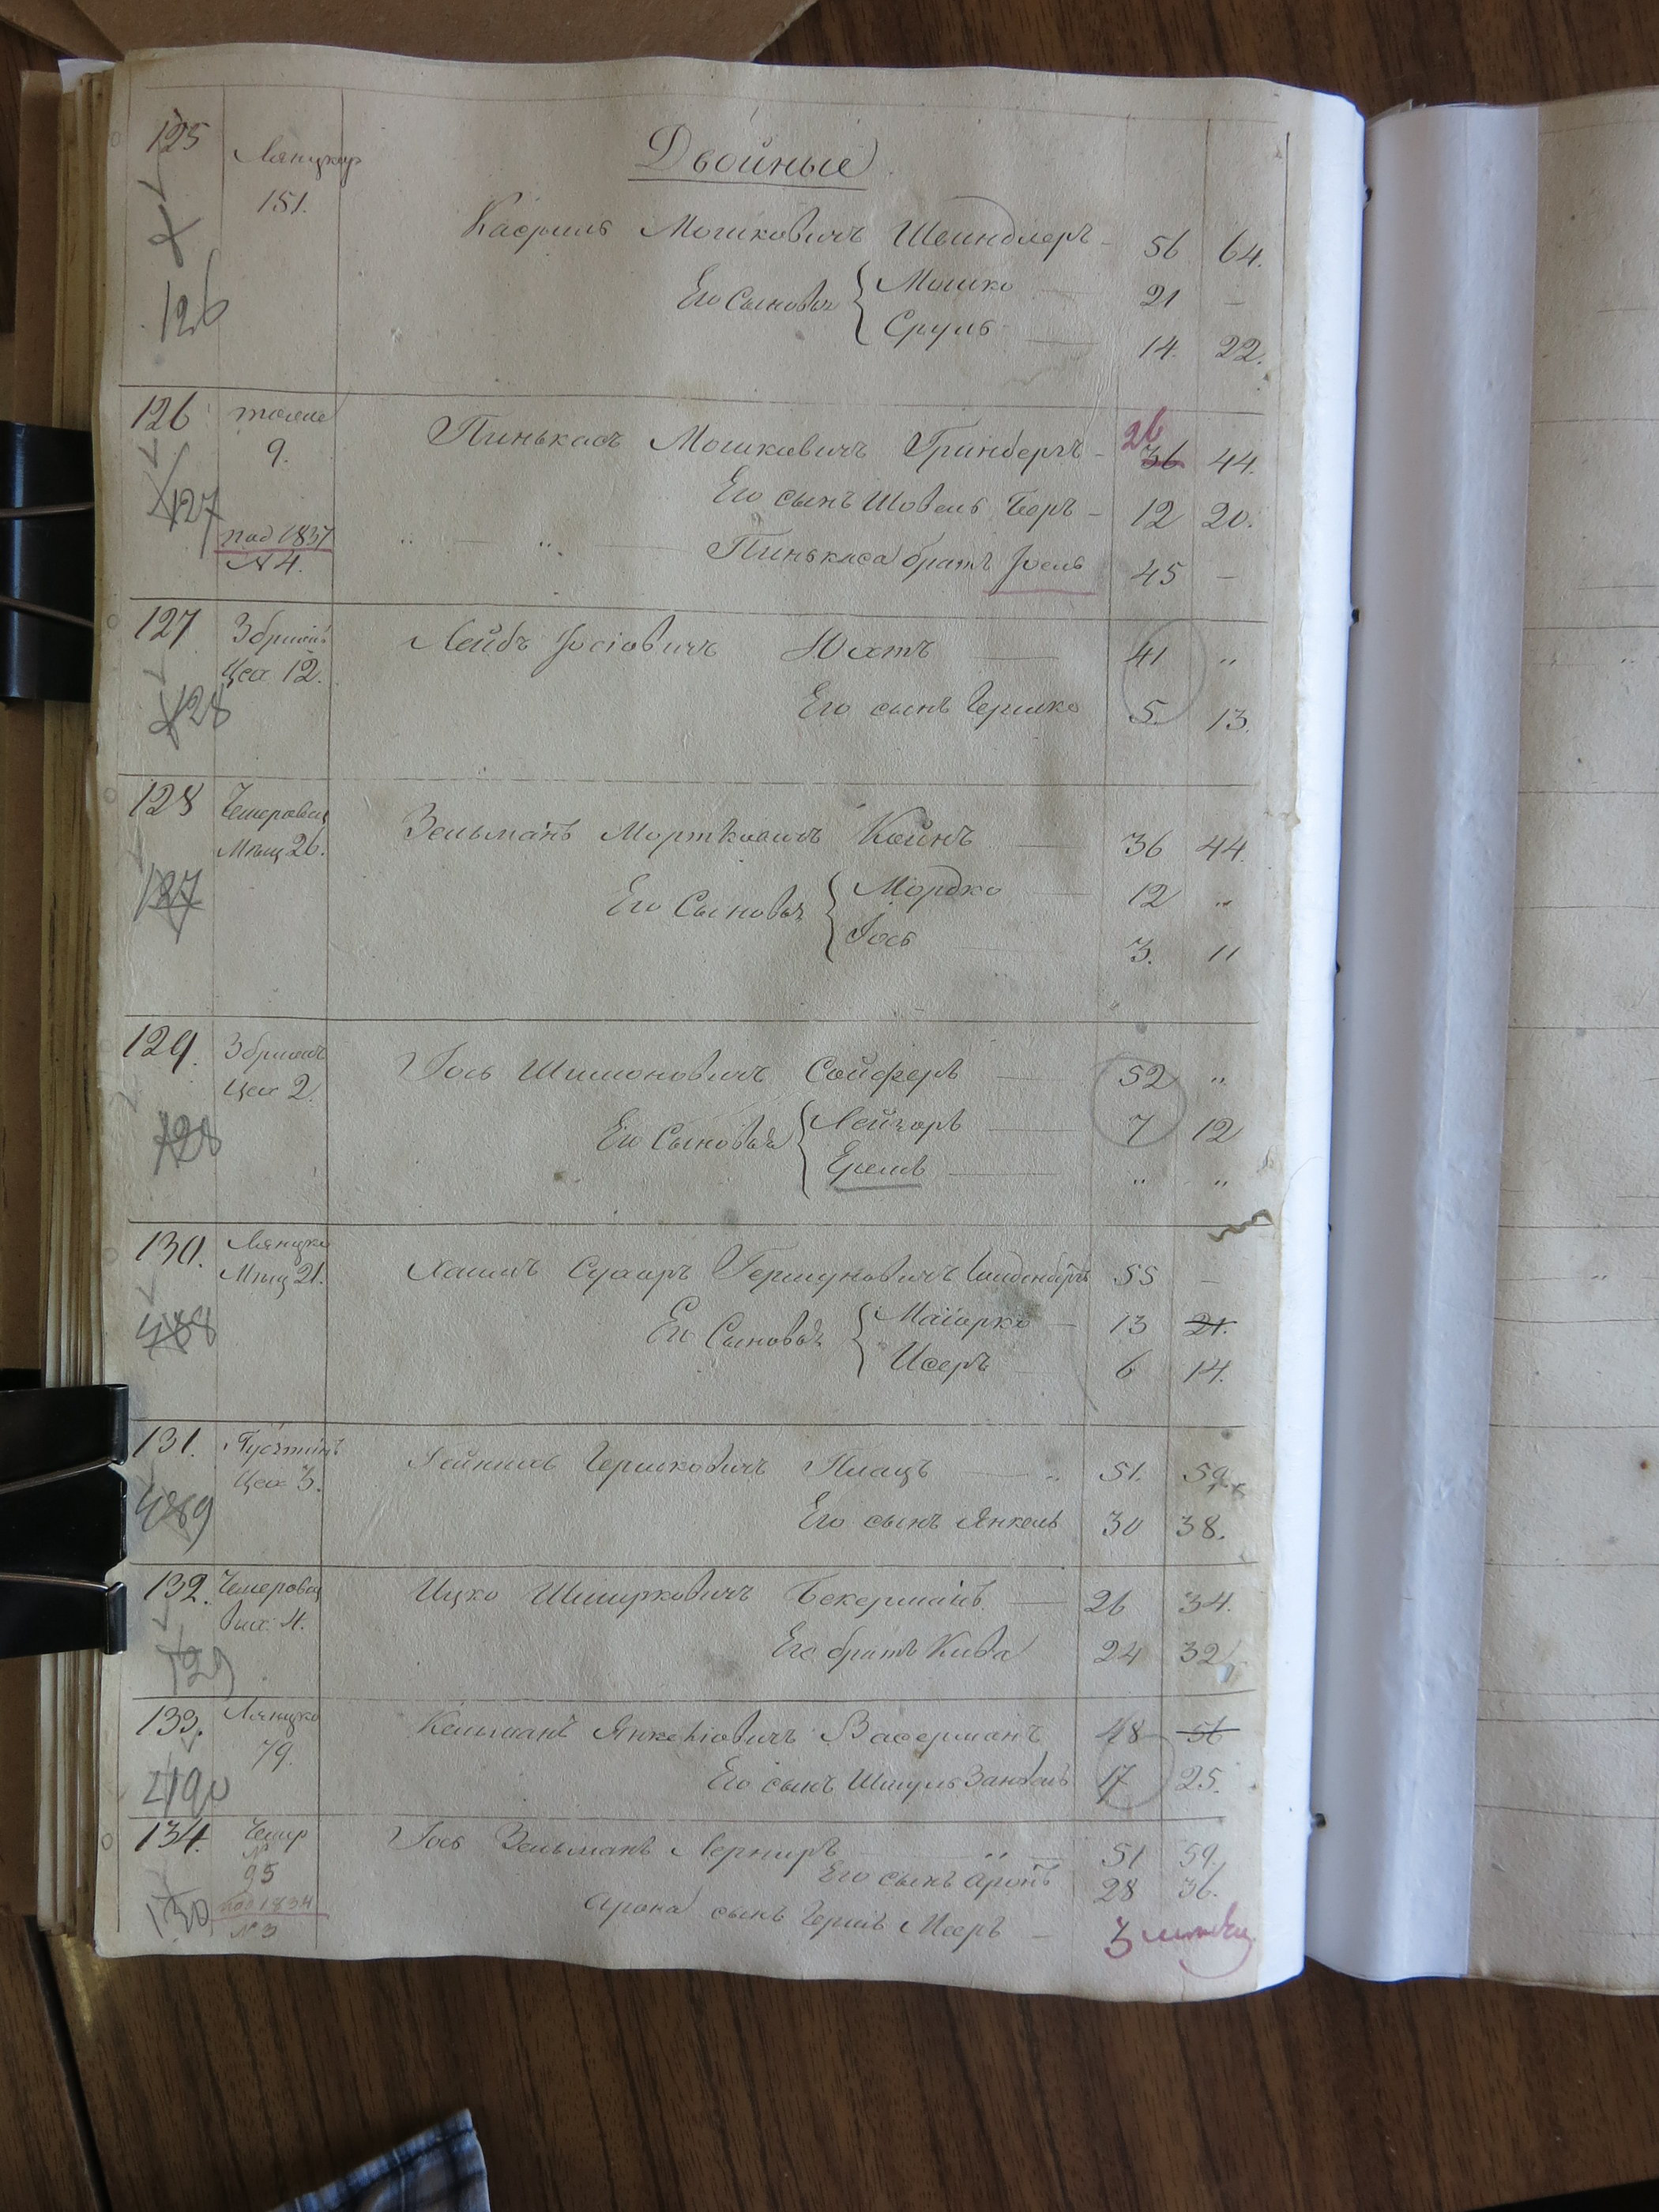 Двойные
125 Лянцкор
151.
Касриль Мошковичъ Швиндлеръ 56 64.
Его Сыновья { Мошко 21 —
Сруль 14. 22.
126
126 тоже
9.
Пинькасъ Мошковичъ Гринбергъ 26 36 44.
127
Его сынъ Шовель Беръ — 12 20.
под 1837
№ 4.
" — " Пинькаса братъ Іоель 45 —
127 Збриж
Цех 12.
Лейбъ Іосіовичъ Юхтъ — 41 "
128
Его сынъ Гершко 5. 13.
128 Чемеровец
Мѣщ 26.
Зельманъ Мортковичъ Койнъ — 36 44.
127
Его Сыновья { Мордко 12 "
Іось 3. 11
129. Збриж
Цех 2.
Іось Шимоновичъ Сойферъ — 52 "
128
Его Сыновья { Лейзоръ — 7 12
" "
130. Лянцко
Мѣщ 21.
Хаимъ Гершуновичъ 55 —
Его Сыновья { Маіорко — 13 21.
Исеръ 6 14.
131.
Цех 3.
Гершковичъ Плацъ — " 51. 59.
Его сынъ Янкель 30 38.
132. Чемеровец
4.
Ицко Шмурковичъ Бекерманъ — 26 34.
129
Его братъ Кива 24 32
133. Лянцко
79.
Кельманъ Янкеліовичъ Васерманъ 48 56
Его сынъ Шмуль Занвель 17 25.
134. Чемер
№
95
Іось Зельманъ Лернеръ " — 51 59.
Его сынъ Аронъ 28 36.
130
под 1834
№ 3
Арона сынъ Герш Мееръ — 3